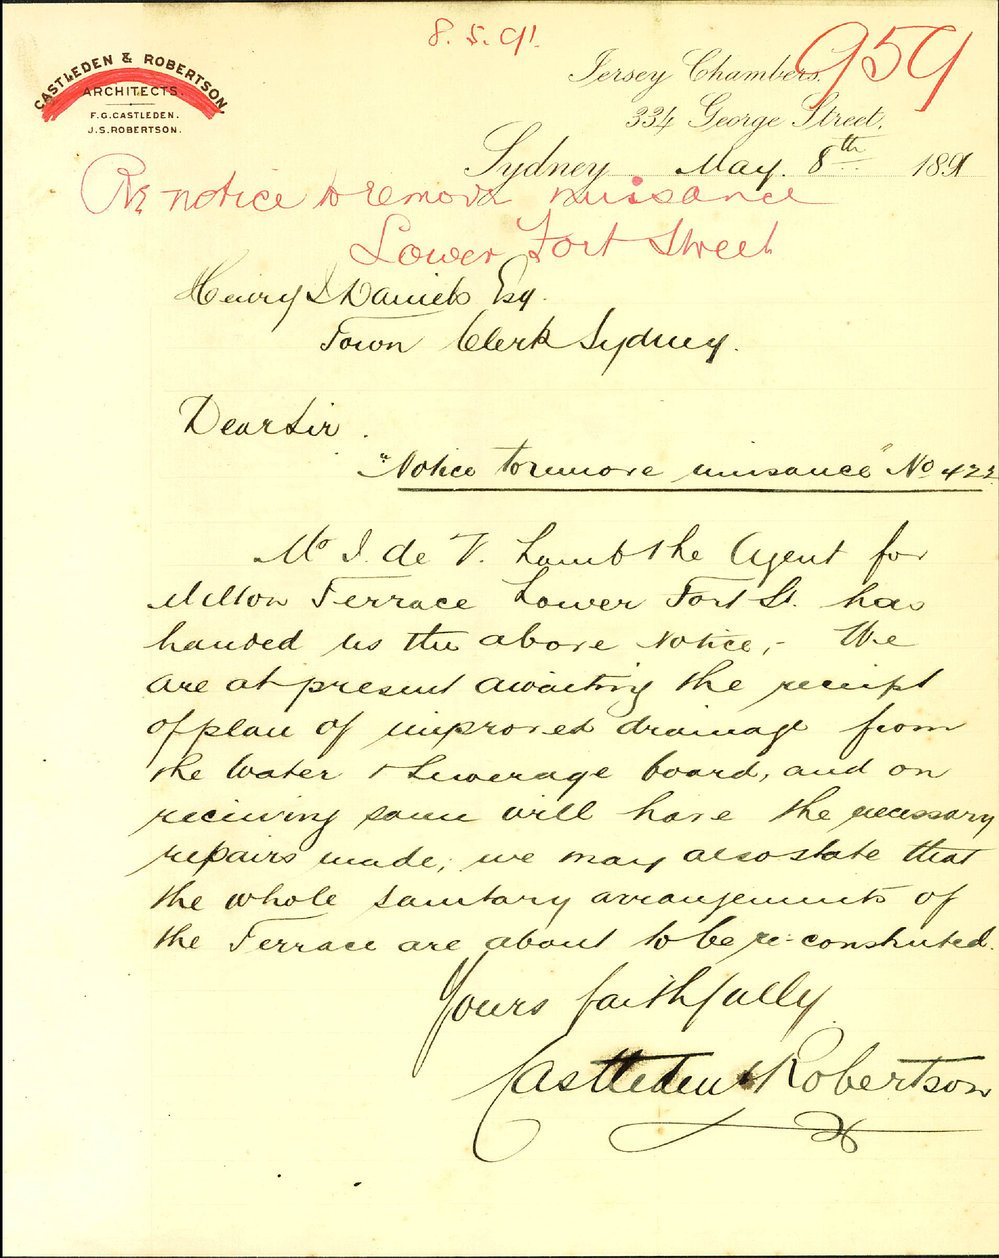 8.5.91.
959
CASTLEDEN & ROBERTSON
ARCHITECTS.
F.G.CASTLEDEN.
J.S.ROBERTSON.
Jersey Chambers.
334 George Street.
Sydney May. 8th 1891
Re notice to remove nuisance
Lower Fort Street
Henry J Daniels Esq.
Town Clerk Sydney.
Dear Sir.
"Notice to remove nuisance" No 422
Mr J. de V. Lamb the Agent for
Milton Terrace Lower Fort St. has
handed us the above Notice,- We
are at present awaiting the receipt
of plan of improved drainage from
the Water & Sewerage board, and on
receiving same will have the necessary
repairs made; we may also state that
the whole sanitary arrangements of
the Terrace are about to be re-constructed.
Yours faithfully
Castleden & Robertson